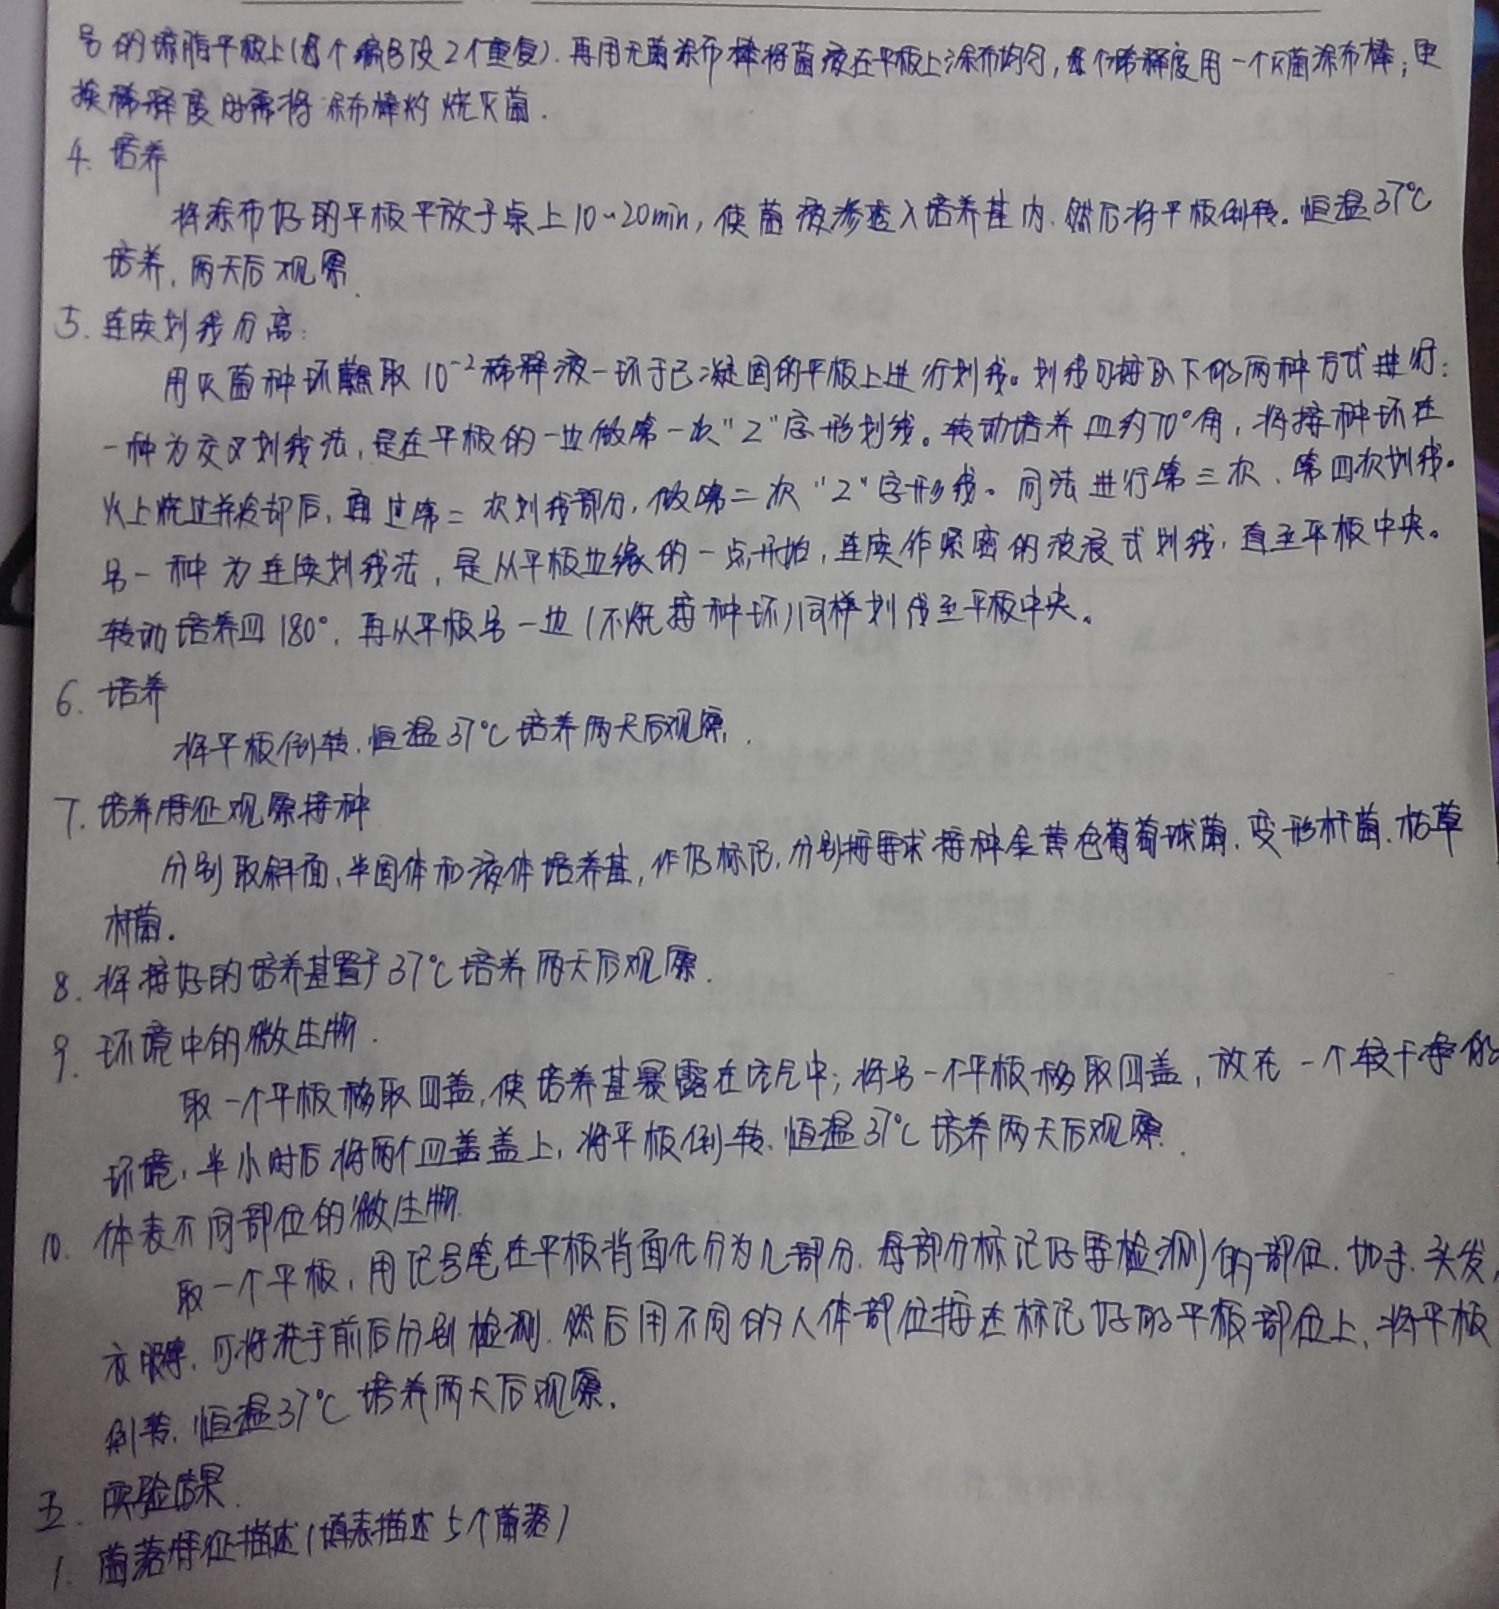 号的琼脂平板上(每个编号设2个重复).再用无菌涂布棒将菌液在平板上涂布均匀,每个稀释度用一个灭菌涂布棒;更
换稀释度时需将涂布棒灼烧灭菌.
4. 培养
将涂布好的平板平放于桌上10~20min,使菌液渗透入培养基内.然后将平板倒转。恒温37℃
培养,两天后观察.
5. 连续划线分离:
用灭菌种环蘸取10⁻²稀释液一环于已凝固的平板上进行划线。划线可按以下的两种方式进行:
一种为交叉划线法,是在平板的一边做第一次"Z"字形划线。转动培养皿约70°角,将接种环在
火上烧过并冷却后,通过第一次划线部分,做第二次"Z"字形线。同法进行第三次、第四次划线。
另一种为连续划线法,是从平板边缘的一点开始,连续作紧密的波浪式划线,直至平板中央。
转动培养皿180°,再从平板另一边(不烧接种环)同样划线至平板中央。
6. 培养
将平板倒转,恒温37℃培养两天后观察.
7. 培养特征观察接种
分别取斜面、半固体和液体培养基,作好标记,分别按要求接种金黄色葡萄球菌、变形杆菌、枯草
杆菌.
8. 将接好的培养基置于37℃培养两天后观察.
9. 环境中的微生物.
取一个平板移取皿盖,使培养基暴露在空气中;将另一个平板移取皿盖,放在一个较干净的
环境,半小时后将两个皿盖盖上,将平板倒转.恒温37℃培养两天后观察.
10. 体表不同部位的微生物.
取一个平板,用记号笔在平板背面化分为几部分.每部分标记好要检测的部位.如手、头发、
衣服等.可将洗手前后分别检测.然后用不同的人体部位接达标记好的平板部位上,将平板
倒转,恒温37℃培养两天后观察.
五. 实验结果.
1. 菌落特征描述(填表描述5个菌落)